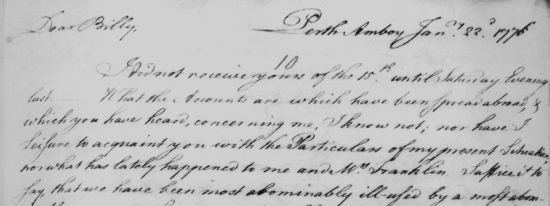 Dear Billy,
Perth Amboy Jan.ʸ 22.ᵈ 1776
10
I did not receive yours of the 15.ᵗʰ until Saturday Evening
last. — What the Accounts are which have been spread abroad, &
which you have heard, concerning me, I know not; nor have I
Leisure to acquaint you with the Particulars of my present Situation
nor what has lately happened to me and Mʳˢ Franklin. Suffice it to
say, that we have been most abominably ill-used by a most abom-